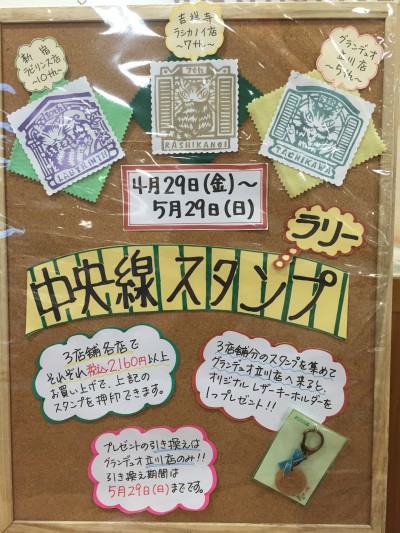 新宿
ラビリンス店
〜10th〜
吉祥寺
ラシカノイ店
〜7th〜
グランデュオ
立川店
〜5th〜
LABYRINTH
7th
RASHIKANOI
TACHIKAWA
4月29日(金)〜
5月29日(日)
ラリー
中央線スタンプ
3店舗各店で
それぞれ税込2160円以上
お買い上げで、上記の
スタンプを押印できます。
3店舗分のスタンプを集めて
グランデュオ立川店へ来ると、
オリジナルレザーキーホルダーを
1つプレゼント!!
プレゼントの引き換えは
グランデュオ立川店のみ!!
引き換え期間は
5月29日(日)までです。